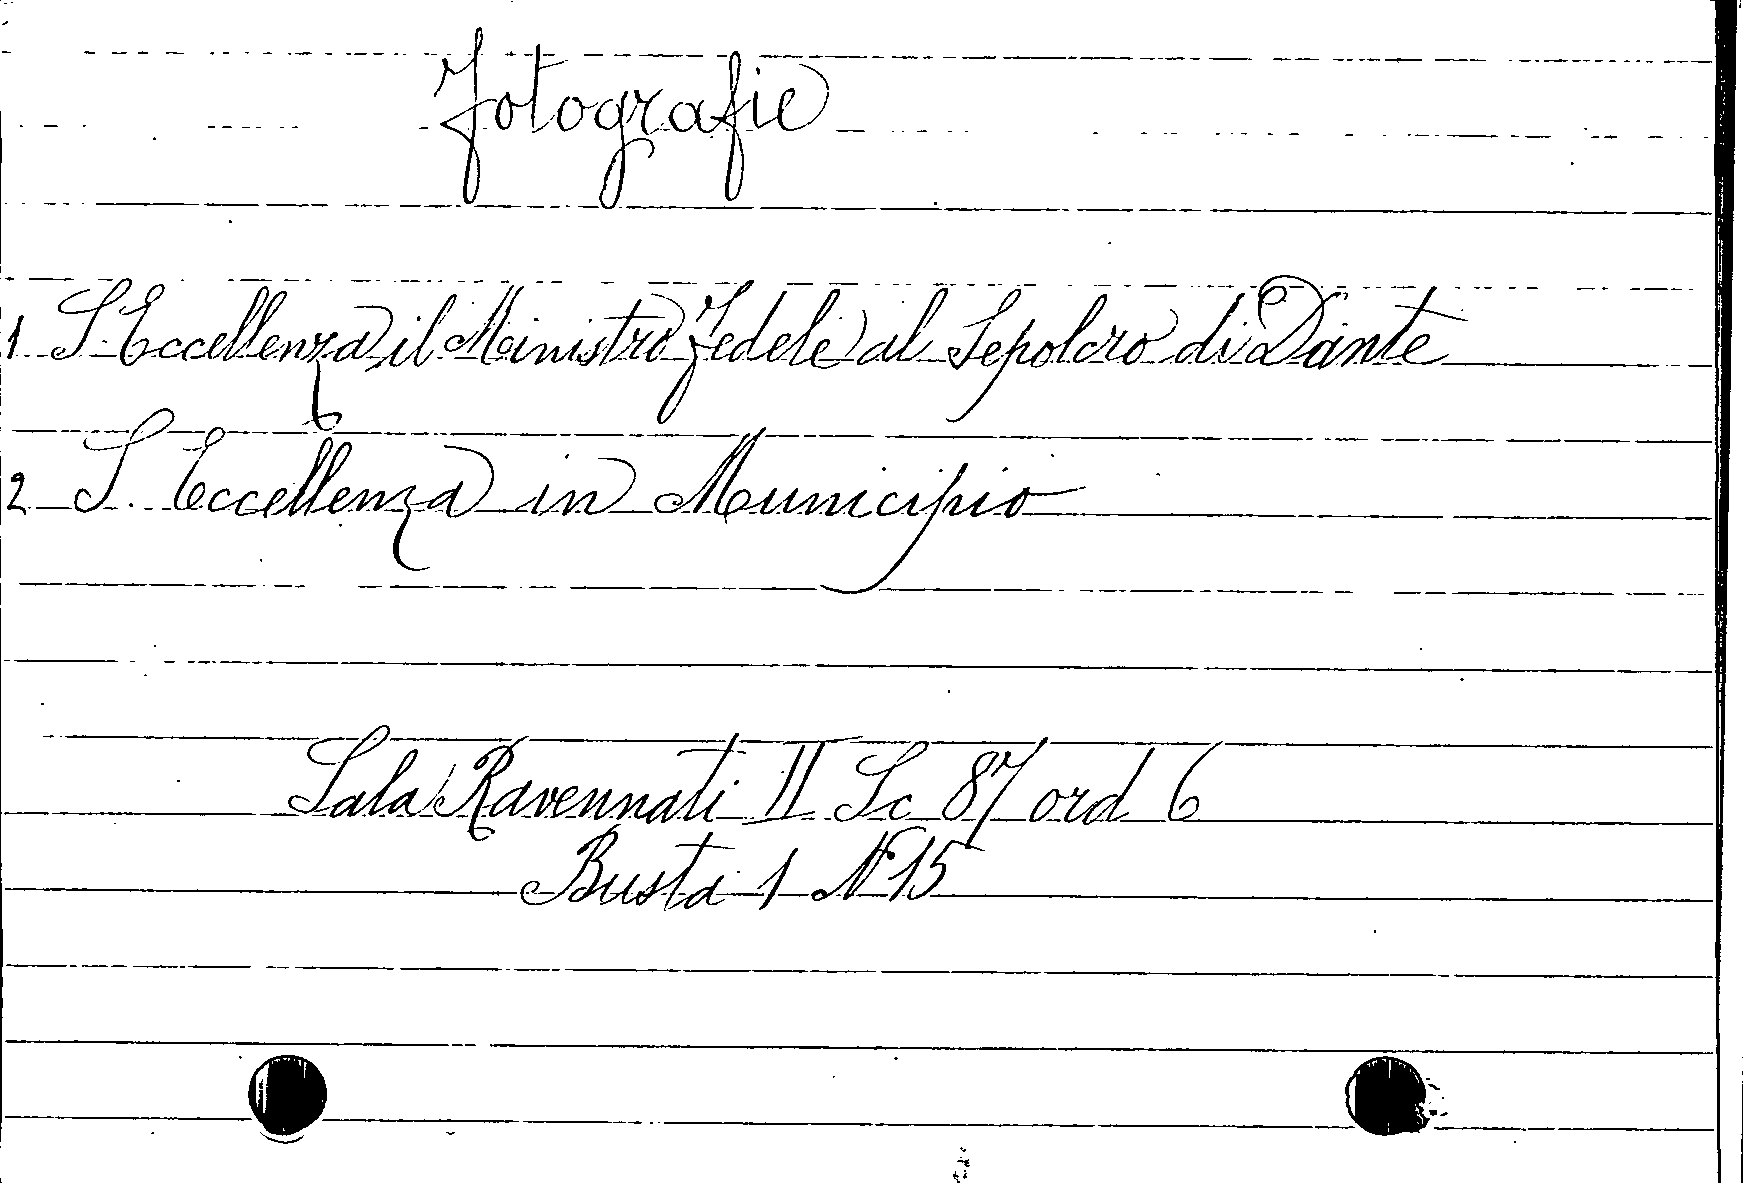 Fotografie
1 S. Eccellenza il Ministro Fedele al Sepolcro di Dante
2 S. Eccellenza in Municipio
Sala Ravennati II Sc 87 ord 6
Busta 1 N 15